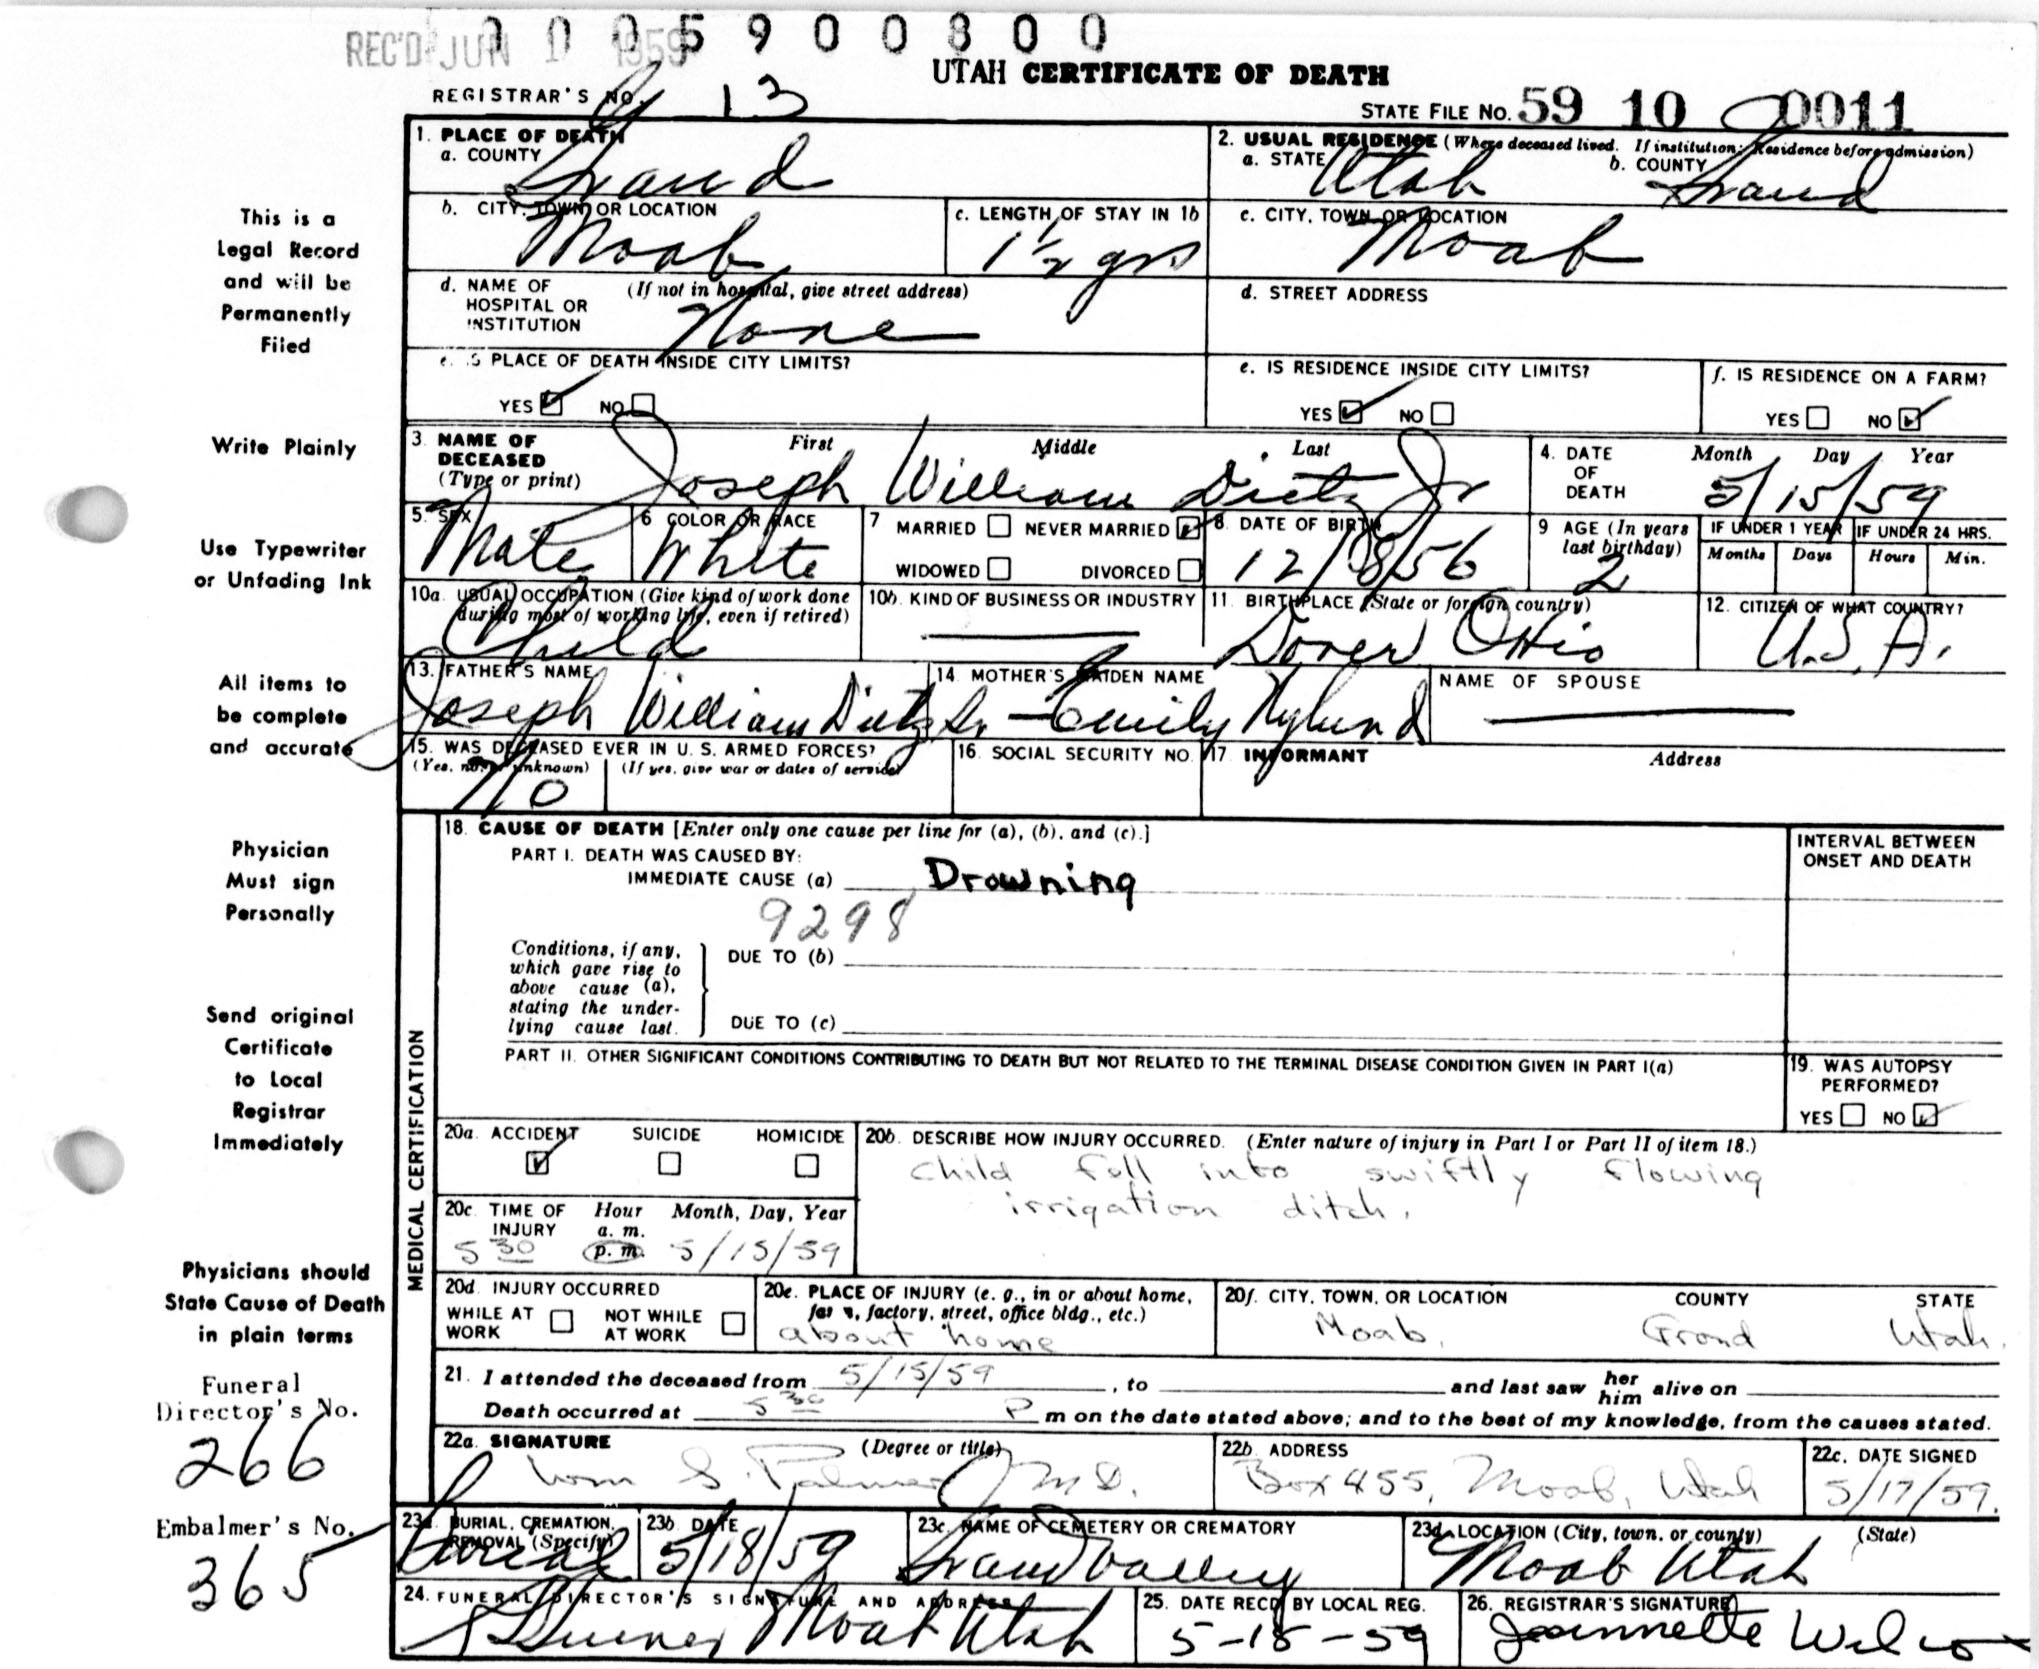 REC'D JUN 1 1959
0005900800
UTAH CERTIFICATE OF DEATH
REGISTRAR'S NO. 13
STATE FILE No. 59 10 0011
1. PLACE OF DEATH
a. COUNTY
Grand
2. USUAL RESIDENCE (Where deceased lived. If institution: Residence before admission)
a. STATE Utah b. COUNTY Grand
b. CITY, TOWN OR LOCATION
Moab
c. LENGTH OF STAY IN 1b
1½ yrs
c. CITY, TOWN OR LOCATION
Moab
d. NAME OF HOSPITAL OR INSTITUTION (If not in hospital, give street address)
None
d. STREET ADDRESS
e. IS PLACE OF DEATH INSIDE CITY LIMITS?
YES NO
e. IS RESIDENCE INSIDE CITY LIMITS?
YES NO
f. IS RESIDENCE ON A FARM?
YES NO
3. NAME OF DECEASED (Type or print)
First Middle Last
Joseph William Dietz Jr
4. DATE OF DEATH
Month Day Year
5/15/59
5. SEX
Male
6 COLOR OR RACE
White
7 MARRIED NEVER MARRIED
WIDOWED DIVORCED
8. DATE OF BIRTH
12/18/56
9 AGE (In years last birthday)
2
IF UNDER 1 YEAR
Months Days
IF UNDER 24 HRS.
Hours Min.
10a. USUAL OCCUPATION (Give kind of work done during most of working life, even if retired)
Child
10b. KIND OF BUSINESS OR INDUSTRY
11. BIRTHPLACE (State or foreign country)
Dover Ohio
12. CITIZEN OF WHAT COUNTRY?
U.S.A.
13. FATHER'S NAME
Joseph William Dietz Sr
14. MOTHER'S MAIDEN NAME
Emily Nylund
NAME OF SPOUSE
15. WAS DECEASED EVER IN U. S. ARMED FORCES?
(Yes, no, or unknown) (If yes, give war or dates of service)
No
16. SOCIAL SECURITY NO.
17. INFORMANT Address
MEDICAL CERTIFICATION
18. CAUSE OF DEATH [Enter only one cause per line for (a), (b), and (c).]
INTERVAL BETWEEN ONSET AND DEATH
PART I. DEATH WAS CAUSED BY:
IMMEDIATE CAUSE (a) Drowning
9298
Conditions, if any, which gave rise to above cause (a), stating the underlying cause last.
DUE TO (b)
DUE TO (c)
PART II. OTHER SIGNIFICANT CONDITIONS CONTRIBUTING TO DEATH BUT NOT RELATED TO THE TERMINAL DISEASE CONDITION GIVEN IN PART I(a)
19. WAS AUTOPSY PERFORMED?
YES NO
20a. ACCIDENT SUICIDE HOMICIDE
20b. DESCRIBE HOW INJURY OCCURRED. (Enter nature of injury in Part I or Part II of item 18.)
Child fell into swiftly flowing
irrigation ditch.
20c. TIME OF INJURY Hour a. m. p. m. Month, Day, Year
5 30 5/15/59
20d. INJURY OCCURRED
WHILE AT WORK NOT WHILE AT WORK
20e. PLACE OF INJURY (e. g., in or about home, farm, factory, street, office bldg., etc.)
about home
20f. CITY, TOWN, OR LOCATION COUNTY STATE
Moab, Grand Utah.
21. I attended the deceased from 5/15/59, to and last saw her him alive on
Death occurred at 5 30 P m on the date stated above; and to the best of my knowledge, from the causes stated.
22a. SIGNATURE (Degree or title)
Wm S. Palmer M D.
22b. ADDRESS
Box 455, Moab, Utah
22c. DATE SIGNED
5/17/59.
23a. BURIAL, CREMATION, REMOVAL (Specify)
Burial
23b. DATE
5/18/59
23c. NAME OF CEMETERY OR CREMATORY
Grand Valley
23d. LOCATION (City, town, or county) (State)
Moab Utah
24. FUNERAL DIRECTOR'S SIGNATURE AND ADDRESS
Moab Utah
25. DATE RECD BY LOCAL REG.
5-18-59
26. REGISTRAR'S SIGNATURE
Jeannette Wilcox
This is a
Legal Record
and will be
Permanently
Filed
Write Plainly
Use Typewriter
or Unfading Ink
All items to
be complete
and accurate
Physician
Must sign
Personally
Send original
Certificate
to Local
Registrar
Immediately
Physicians should
State Cause of Death
in plain terms
Funeral
Director's No.
266
Embalmer's No.
365